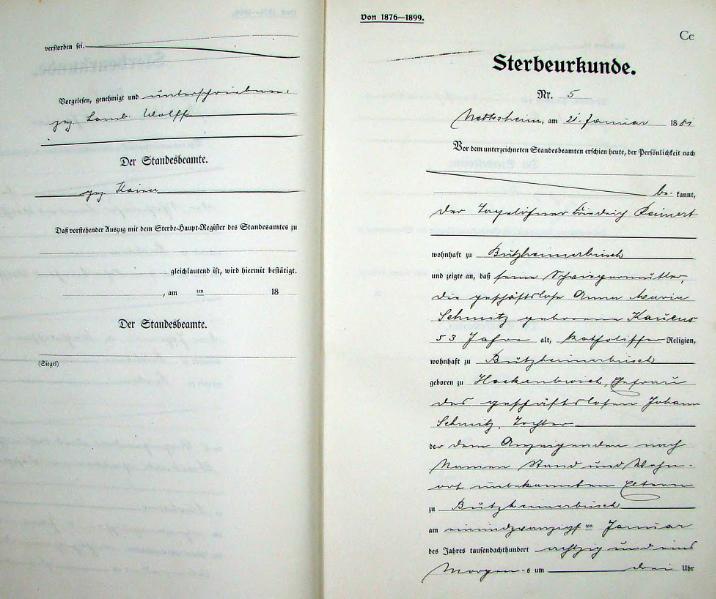 verstorben sei.
Vorgelesen, genehmigt und unterschrieben.
gez Lamb. Wolff
Der Standesbeamte.
gez
Daß vorstehender Auszug mit dem Sterbe-Haupt-Register des Standesamtes zu
gleichlautend ist, wird hiermit bestätigt.
, am ten 18
Der Standesbeamte.
(Siegel)
Von 1876—1899.
Cc
Sterbeurkunde.
Nr. 5
Nettesheim, am 21. Januar 1881
Vor dem unterzeichneten Standesbeamten erschien heute, der Persönlichkeit nach
be kannt,
der Tagelöhner Friedrich Reinert
wohnhaft zu Bützheimerbusch
und zeigte an, daß seine Schwiegermutter,
die geschäftslose Anna Maria
Schmitz geborene
53 Jahre alt, katholischer Religion,
wohnhaft zu Bützheimerbusch
geboren zu Hackenbroich, Ehefrau
des geschäftslosen Johann
Schmitz, Tochter
der dem Anzeigenden nach
Namen Stand und Wohn-
ort unbekannten Eltern
zu Bützheimerbusch
am einundzwanzigsten Januar
des Jahres tausendachthundert achtzig und eins
Morgens um drei Uhr